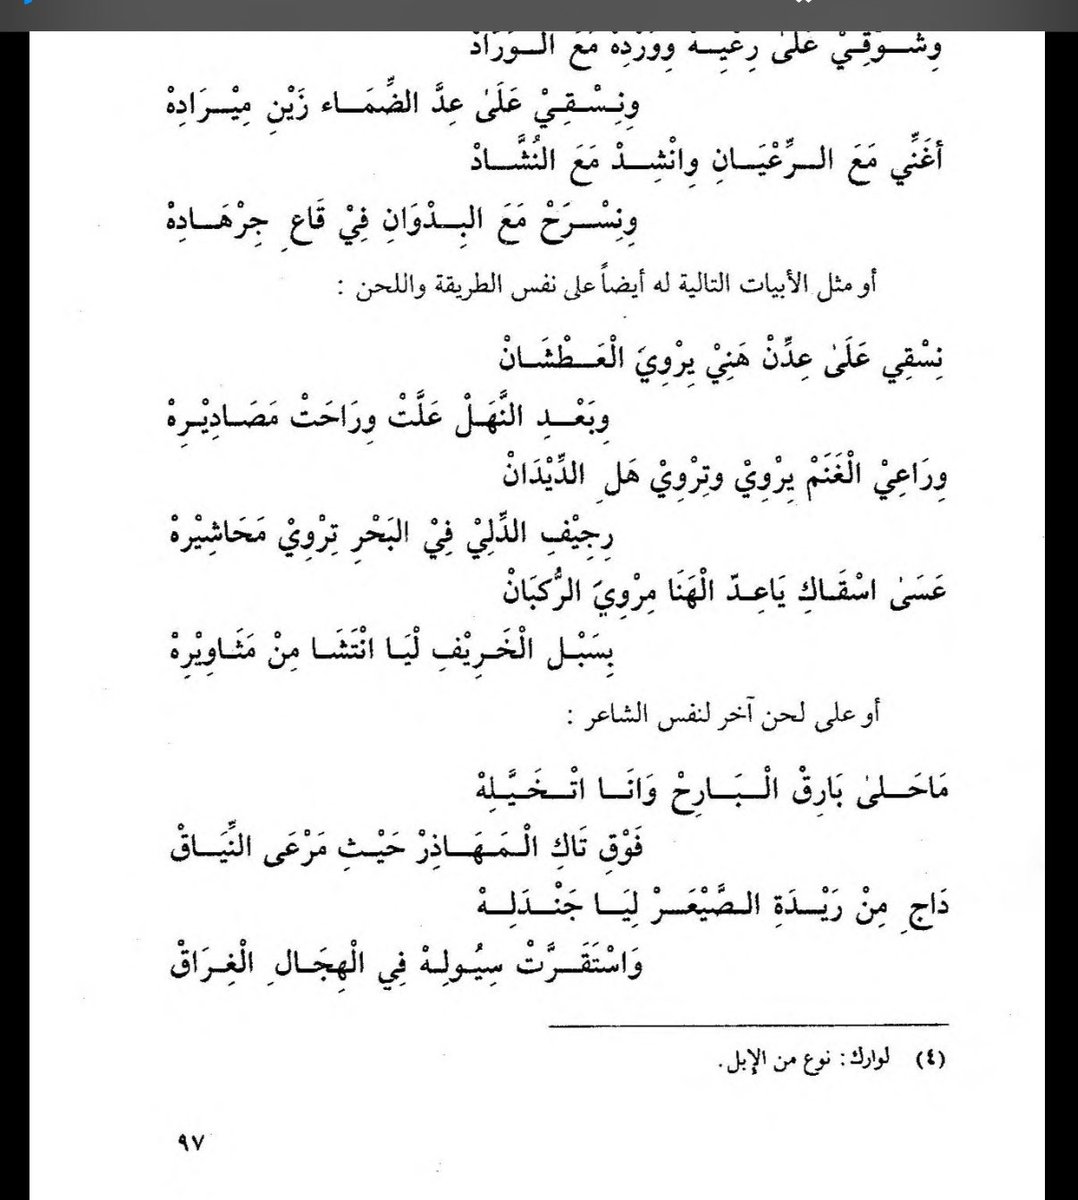 وِشَـــوْقِـيْ عَلَىٰ رِعْيِـــهْ وِوِرْدِهْ مَعَ الْـــوَرَّادْ
وِنِــسْــقِــيْ عَلَىٰ عِدَّ الضِّمَــاء زَيْنِ مِيْـــرَادِهْ
أغَنِّي مَعَ الـــرِّعْيَـــانِ وِانْشِـــدْ مَعَ النُشَّـــادْ
وِنِسْـــرَحْ مَعَ البِـــدْوَانِ فِيْ قَاعِ جِرْهَـــادِهْ
أو مثل الأبيات التالية له أيضاً على نفس الطريقة واللحن :
نِسْقِي عَلَىٰ عِدِّنْ هَنِيْ يِرْوِيَ الْعَـــطْشَـــانْ
وِبَعْـــدِ النَّهَـلْ عَلَّتْ وِرَاحَتْ مَصَـادِيْـرِهْ
وِرَاعِيْ الْغَنَمْ يِرْوِيْ وتِرْوِيْ هَلِ الدِّيْدَانْ
رِجِيْفِ الدِّلِيْ فِيْ البَحْرِ تِرْوِيْ مَحَاشِيْرِهْ
عَسَىٰ اسْقَـاكِ يَاعِـدّ الْهَنَا مِرْوِيَ الرُّكبَانْ
بِسَبْـلِ الْخَـرِيْفِ لْيَـا انْتَشَـا مِنْ مَثَـاوِيْرِهْ
أو على لحن آخر لنفس الشاعر :
مَاحَـــلىٰ بَارِقْ الْـــبَـــارِحْ وَانَـــا اتْـــخَـــيَّلِهْ
فَوْقِ تَاكِ الْـمَـهَـــاذِرْ حَيْـــثِ مَرْعَى النِّيَـــاقْ
دَاجِ مِنْ رَيْـــدَةِ الـصَّيْعَـــرْ لِيَـــا جَنْـــدَلِـــهْ
وَاسْتَقَـــرَّتْ سِيُـولِـهْ فِي الْهِجَـالِ الْغِرَاقْ
(٤) لوارك: نوع من الإبل.
٩٧